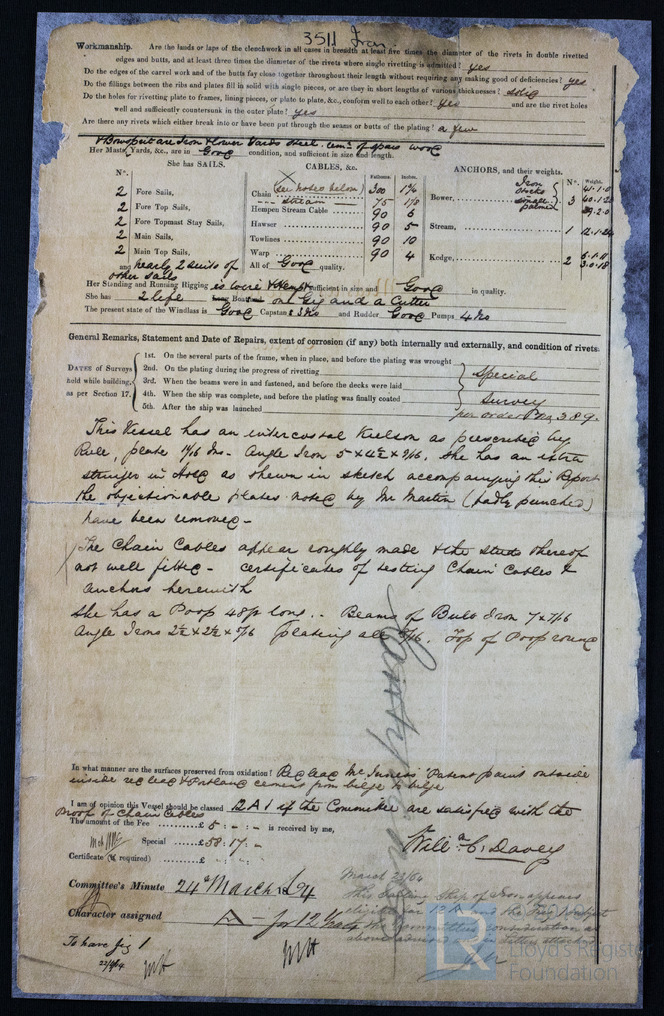 3511 Iron
Workmanship. Are the lands or laps of the clenchwork in all cases in breadth at least five times the diameter of the rivets in double rivetted
edges and butts, and at least three times the diameter of the rivets where single rivetting is admitted? yes
Do the edges of the carvel work and of the butts fay close together throughout their length without requiring any making good of deficiencies? yes
Do the fillings between the ribs and plates fill in solid with single pieces, or are they in short lengths of various thicknesses? solid
Do the holes for rivetting plate to frames, lining pieces, or plate to plate, &c., conform well to each other? Yes and are the rivet holes
well and sufficiently countersunk in the outer plate? yes
Are there any rivets which either break into or have been put through the seams or butts of the plating? a few
& Bowsprit are Iron & lower Yards steel. rem. of spars wood
Her Masts, Yards, &c., are in Good condition, and sufficient in size and length.
She has SAILS. CABLES, &c. ANCHORS, and their weights.
Nº. Fathoms. Inches. Nº. Weight.
2 Fore Sails,
2 Fore Top Sails,
2 Fore Topmast Stay Sails,
2 Main Sails,
2 Main Top Sails,
and nearly 2 suits of
other sails
Chain (see notes below) 300
stream 75
Hempen Stream Cable 90 6
Hawser 90 5
Towlines 90 10
Warp 90 4
All of Good quality.
Iron
stocks
small
palmed
Bower, 3
Stream, 1
Kedge, 2
Her Standing and Running Rigging is wire & Hemp sufficient in size and Good in quality.
She has 2 life Boats one Gig and a Cutter
The present state of the Windlass is Good Capstan & 3 No and Rudder Good Pumps 4 No
General Remarks, Statement and Date of Repairs, extent of corrosion (if any) both internally and externally, and condition of rivets.
DATES of Surveys
held while building,
as per Section 17.
1st. On the several parts of the frame, when in place, and before the plating was wrought
2nd. On the plating during the progress of rivetting
3rd. When the beams were in and fastened, and before the decks were laid
4th. When the ship was complete, and before the plating was finally coated
5th. After the ship was launched
Special
Survey
per order No 389.
This Vessel has an intercostal Keelson as prescribed by
Rule, plate 11/16 Ins - Angle Iron 5 x 4½ x 9/16. She has an extra
stringer in Hold as shewn in sketch accompanying this Report
the objectionable plates noted by Mr Martin (badly punched)
have been removed -
The Chain Cables appear roughly made & the studs thereof
not well fitted - certificates of testing Chain Cables &
Anchors herewith
She has a Poop 48ft long. - Beams of Bulb Iron 7 x 7/16
Angle Irons 2½ x 2½ x 5/16 plating all 5/16. Top of Poop round
In what manner are the surfaces preserved from oxidation? Red lead Mc Inness' Patent paint outside
inside red lead & Portland cement from bilge to bilge
I am of opinion this Vessel should be classed 12 A 1 if the Committee are satisfied with the
Proof of Chain Cables
The amount of the Fee £ 5 : - : - is received by me,
Special £ 58 : 17 : -
Certificate (if required) £
Willm C. Davey
Committee's Minute 24th March 1864
Character assigned A - for 12 Years
March 23/64
this sailing ship of Iron appears
eligible for 12 A
the Committee's consideration as
To have fig 1
22/3/64
MH
MH
LR
Lloyd's Register
Foundation